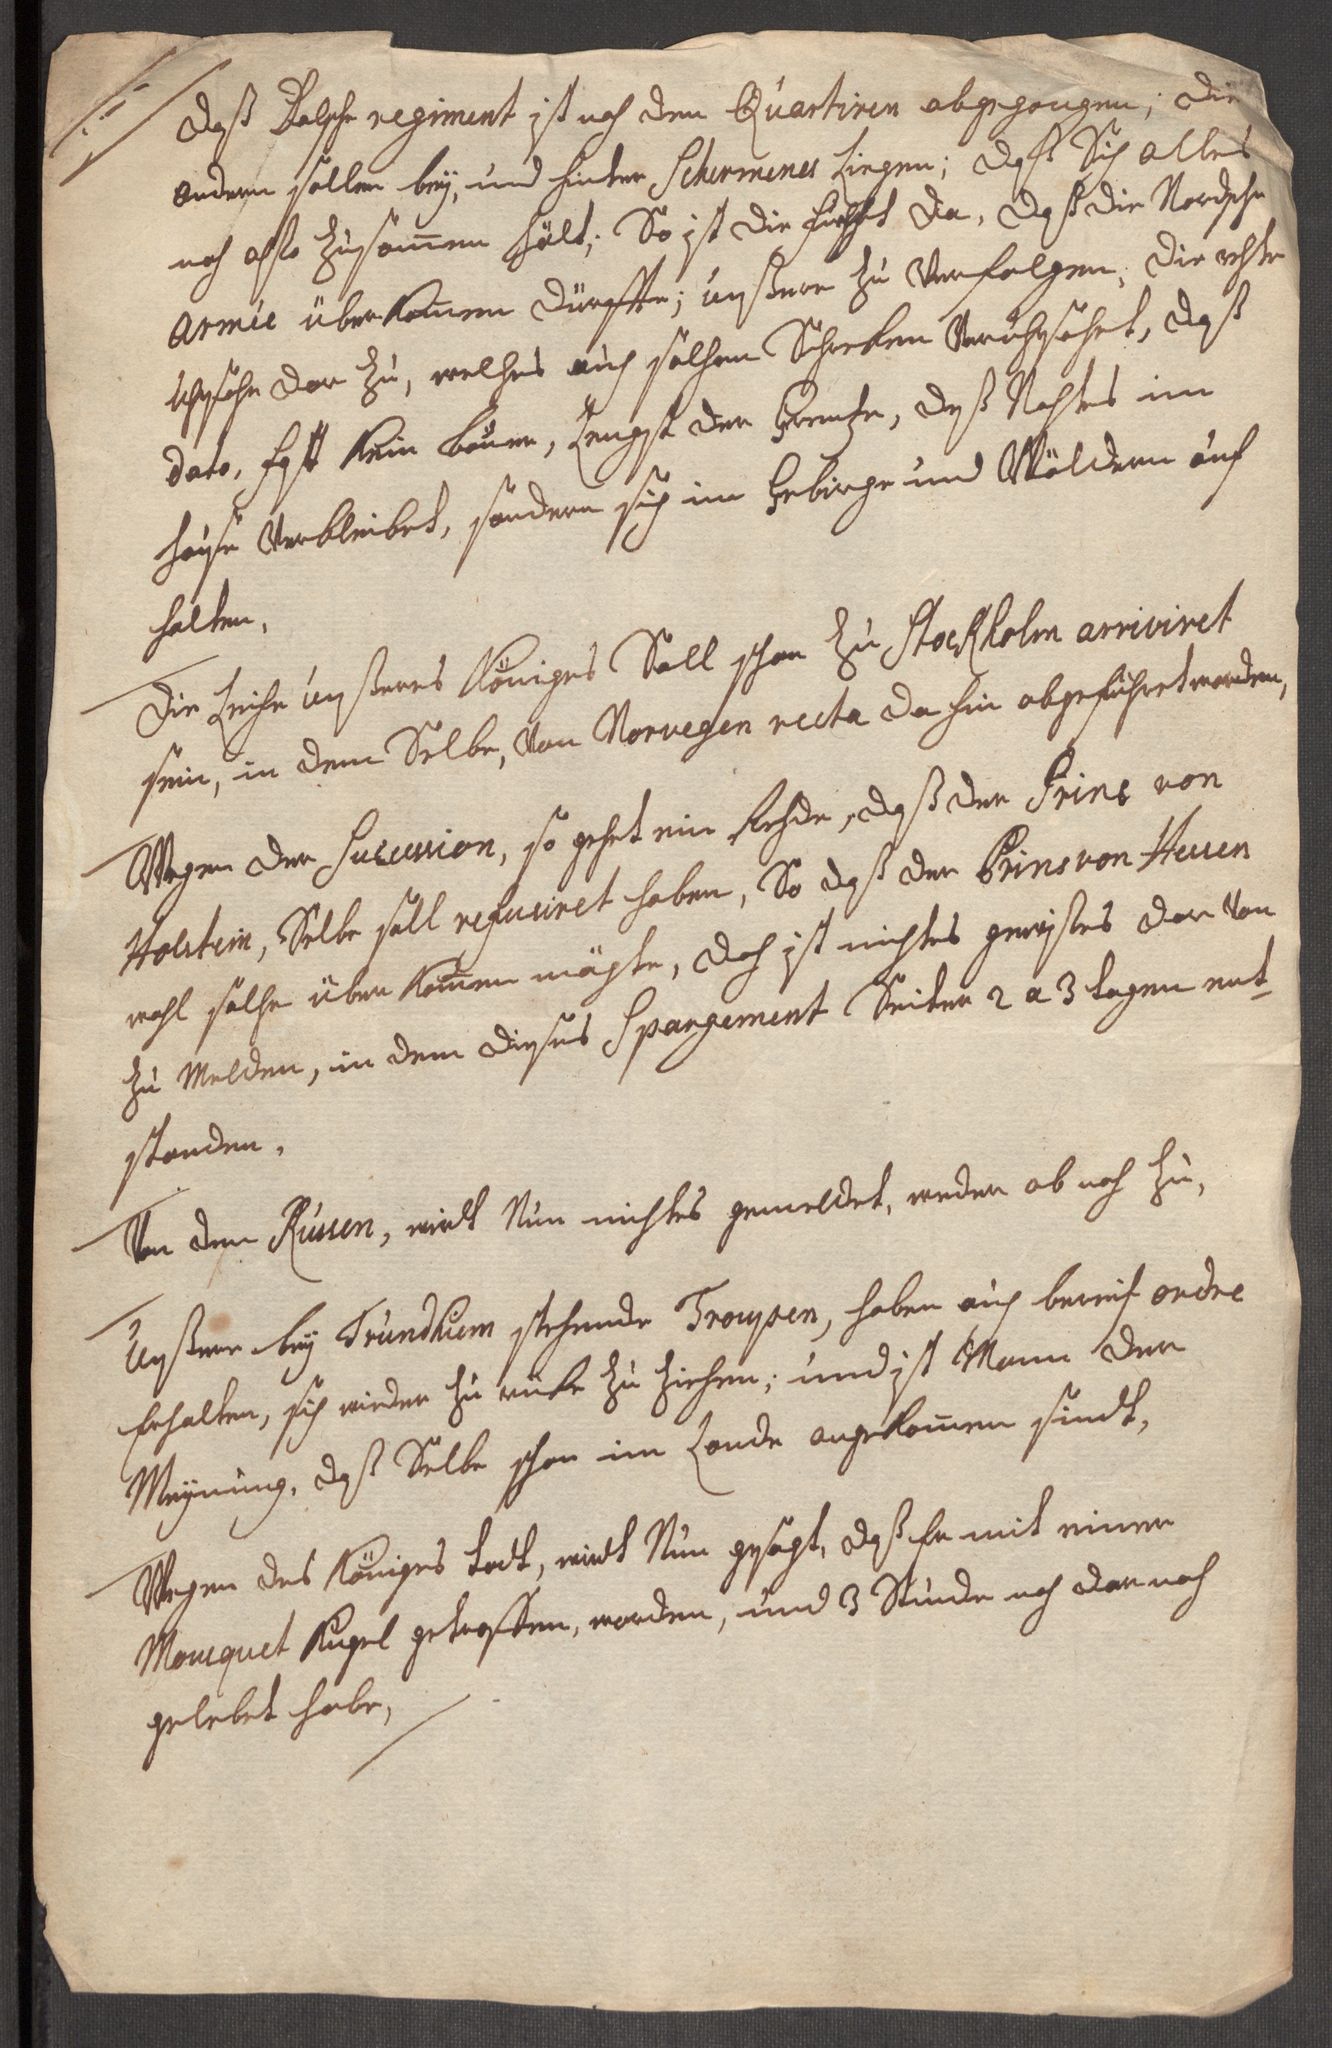 Daß Dalsche regiment ist nach den Quartiren abgegangen; die
andern sollen bey, und hinter Schermenes Liegen; daß Sich alles
noch also zusam̄en hält; So ist die furcht da, daß die Nordsche
Armée überkom̄en dürffte; unßere zu Verfolgen; die rechte
Uhrsache dar zu, welches auch solchen Schreken Veruhrsachet, daß
dato, fast kein baur, Lengst der Grentze, deß Nachtes im
hause Verbleibet, sondern sich im Gebirge und Wäldern auf
halten,
Die Leiche unßeres Königes Soll schon zu Stockholm arriviret
sein, in dem Selbe, Von Norvegen recta da hin abgeführet worden,
Wegen der Sucession, so gehet ein Rehde, daß der Prins von
Holstein, Selbe soll refusiret haben, So daß der Prins von Hessen
wohl solche über kom̄en mögte, doch ist nichtes gewißes dar Von
zu Melden, in dem dieses Spargement Seiter 2 a 3 tagen ent-
standen.
Von den Russen, wirdt Nun nichtes gemeldet, weder ab noch zu,
Unßere bey Trundhiem stehende Trouppen, haben auch bereit ordre
Erhalten, sich wieder zu rüke zu ziehen; und ist Mann der
Meynung, daß Selbe schon im Lande angekom̄en sindt,
Wegen des Königes todt, wirdt Nun gesagt, daß Er mit einer
Mousquet Kugel getroffen, worden, und 3 Stunde noch dar nach
gelebet habe,